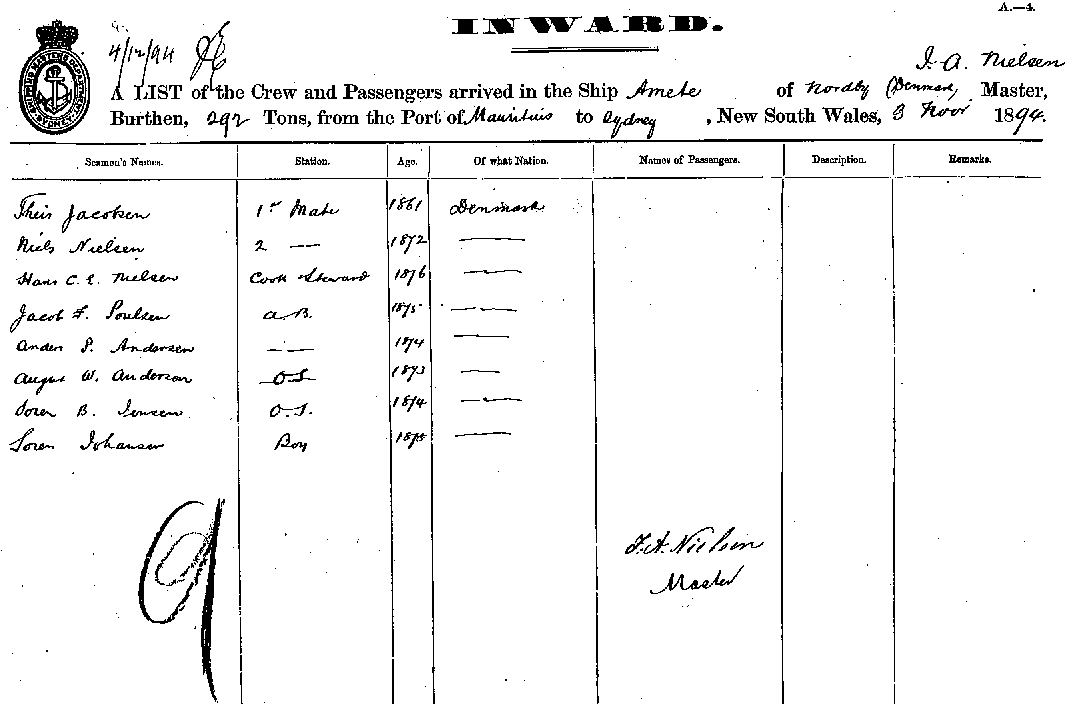 A.—4.
INWARD.
4/12/94
J. A. Nielsen
A LIST of the Crew and Passengers arrived in the Ship Amete of Nordby (Denmark) Master,
Burthen, 292 Tons, from the Port of Mauritius to Sydney, New South Wales, 3 Novr 1894.
Seamen's Names. Station. Age. Of what Nation. Names of Passengers. Description. Remarks.
Theis Jacobsen 1st Mate 1861 Denmark
Niels Nielsen 2 — 1872 —
Hans C. E. Nielsen Cook Steward 1876 —
Jacob F. Poulsen A.B. 1875 —
Anders P. Andersen — 1874 —
August W. Anderson O.S. 1873 —
Soren B. Jensen O.S. 1874 —
Soren Johansen Boy 1875 —
9
J. A. Nielsen
Master